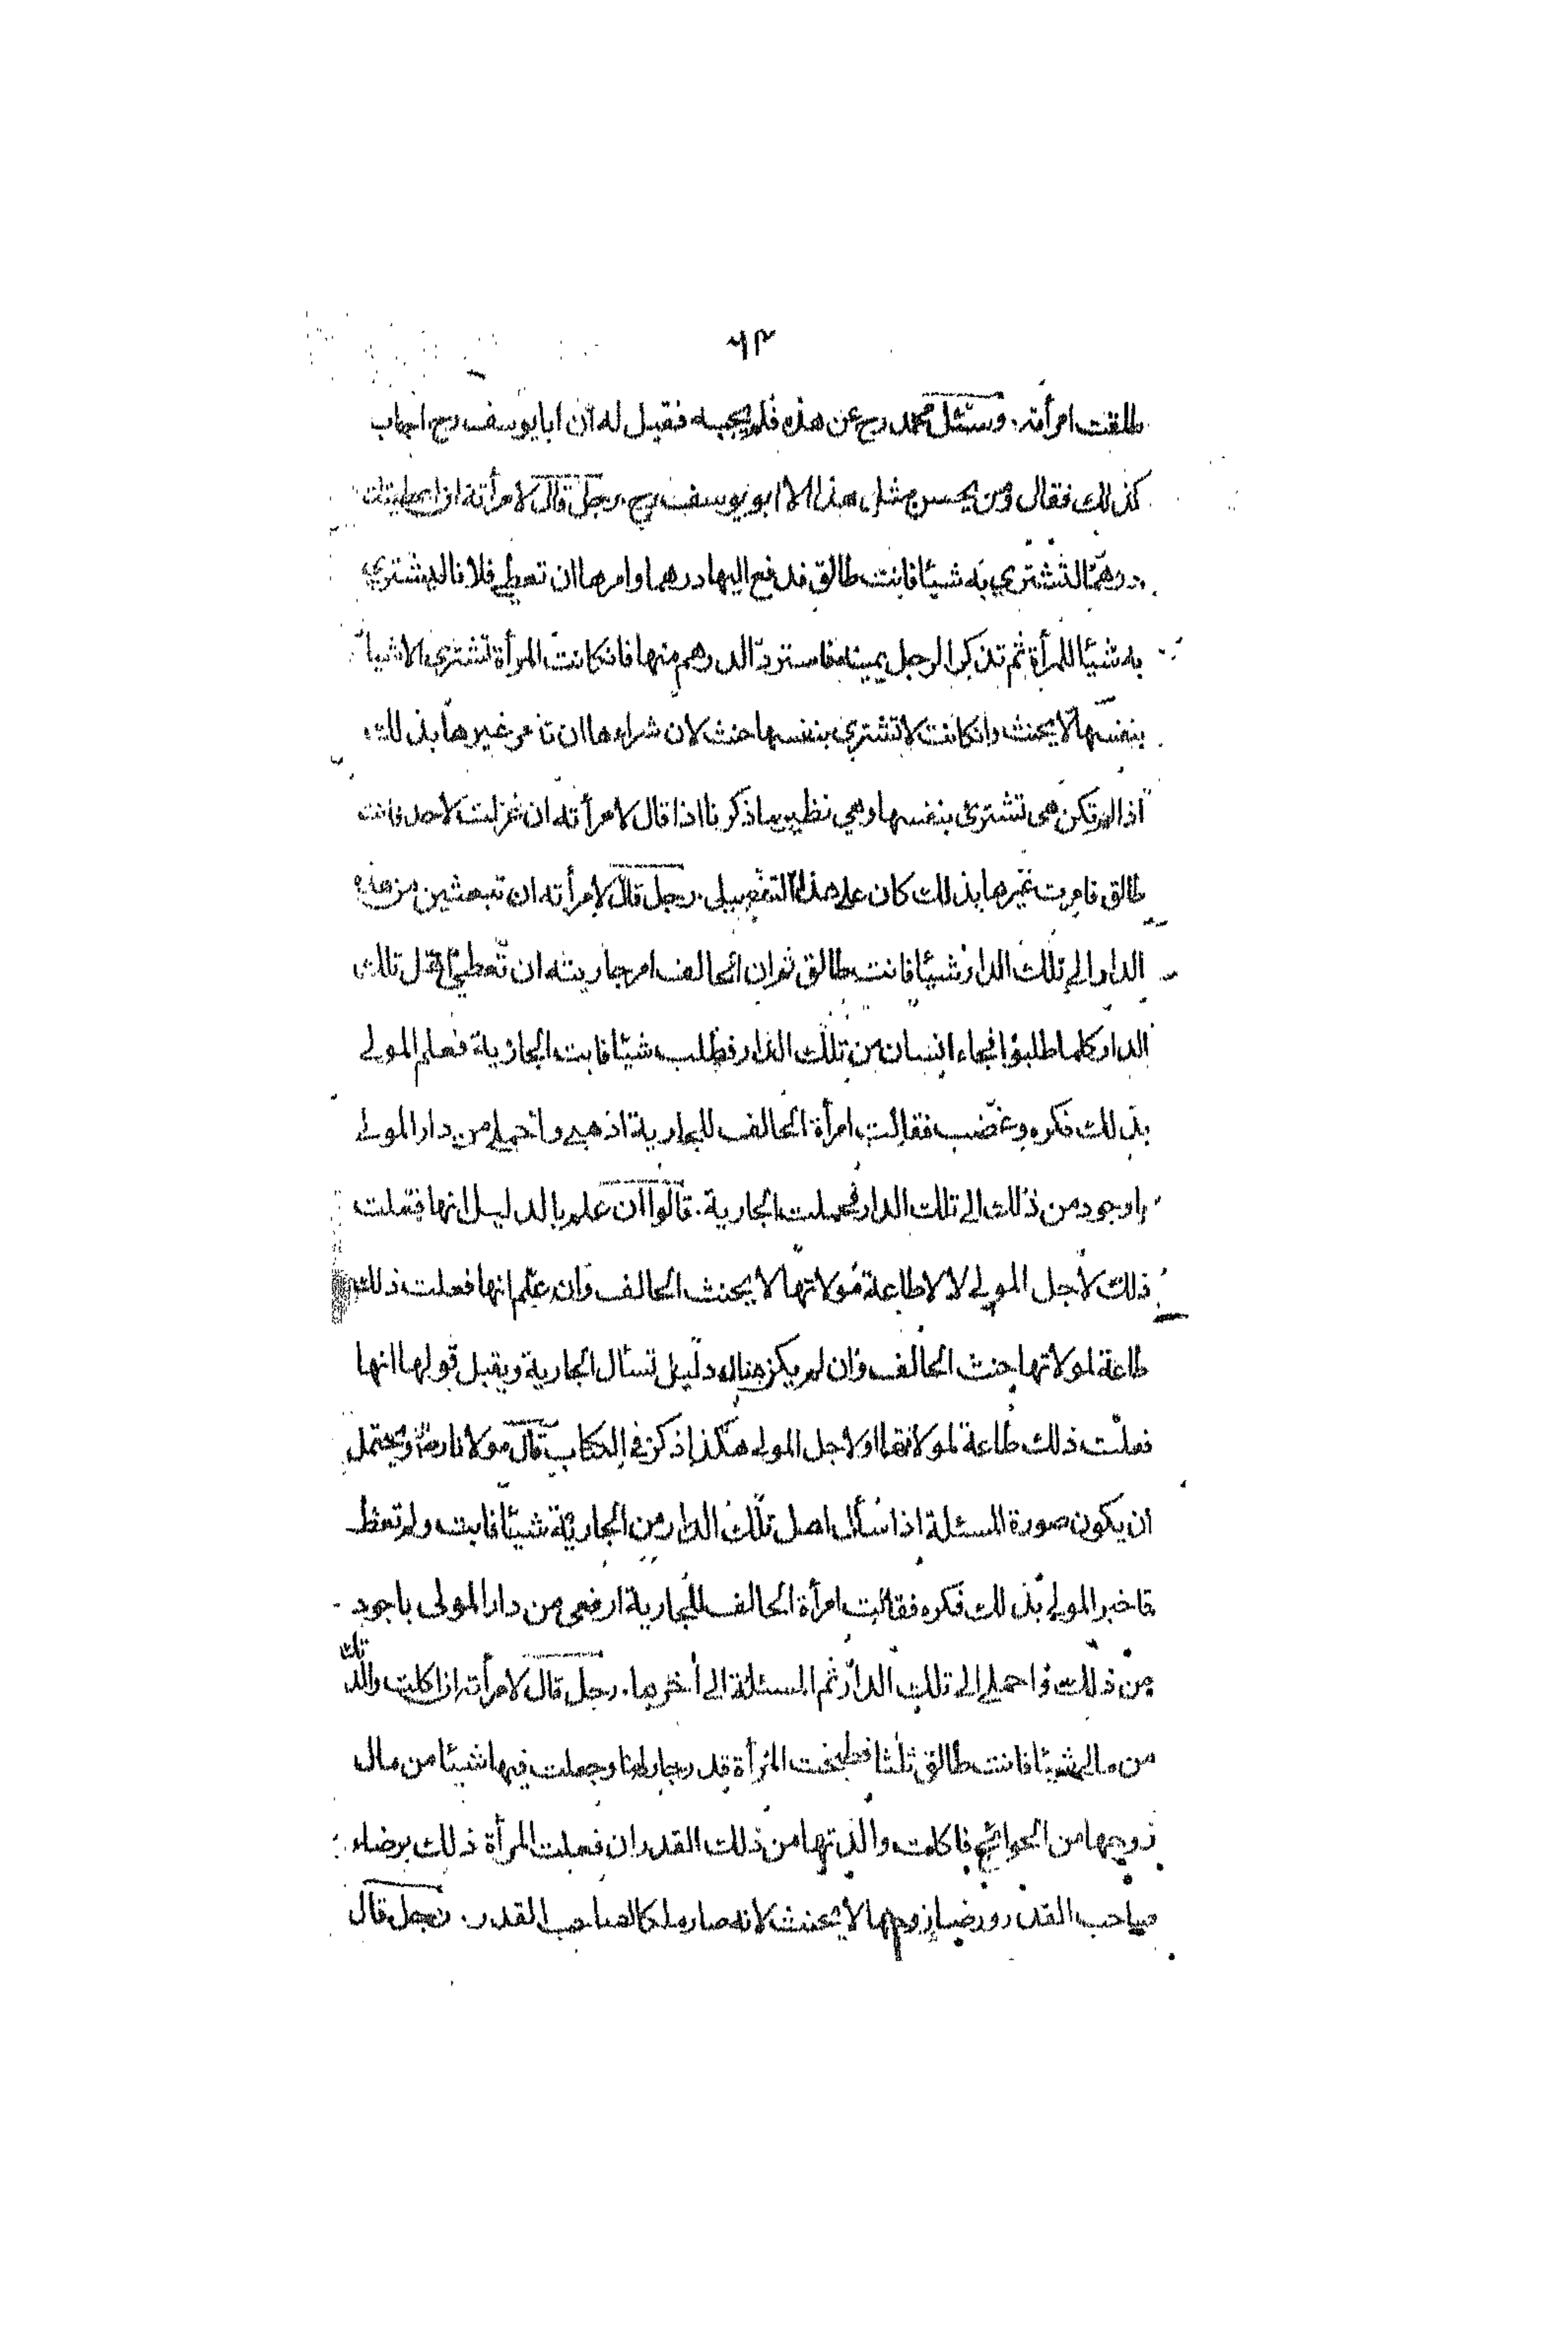 ٦٣
طلقت امرأته. وسئل محمد رح عن هذه فلم يجبه فقيل له ان ابا يوسف رح اجاب
كذلك فقال ومن يحسن مثل هذا الا ابو يوسف رح. رجل قال لامرأته ان اعطيتك
درهما لتشتري به شيئا فانت طالق فدفع اليها درهما وامرها ان تعطي فلانا ليشتري
به شيئا للمرأة ثم تذكر الرجل يمينه فاسترد الدرهم منها فان كانت المرأة تشتري الاشيا
بنفسها لا يحنث وان كانت لا تشتري بنفسها حنث لان شراءها ان تامر غيرها بذلك
اذا لم تكن هي تشتري بنفسها وهي نظير ما ذكرنا اذا قال لامرأته ان غزلت لاحد فانت
طالق فامرت غيرها بذلك كان على هذا التفصيل. رجل قال لامرأته ان تبعثين من هذه
الدار الى تلك الدار شيئا فانت طالق ثم ان الحالف امر جاريته ان تعطي اهل تلك
الدار كلما طلبوا فجاء انسان من تلك الدار فطلب شيئا فابت الجارية فعلم المولى
بذلك فكره وغضب فقالت امرأة الحالف للجارية اذهبي واحملي من دار المولى
اجود من ذلك الى تلك الدار فحملت الجارية. قالوا ان علم بالدليل انها فعلت
ذلك لاجل المولى لا لاطاعة مولاتها لا يحنث الحالف وان علم انها فعلت ذلك
طاعة لمولاتها حنث الحالف وان لم يكن هناك دليل تسأل الجارية ويقبل قولها انها
فعلت ذلك طاعة لمولاتها او لاجل المولى هكذا ذكر في الكتاب قال مولانا رض ويحتمل
ان يكون صورة المسئلة اذا سأل اهل تلك الدار من الجارية شيئا فابت ولم تعط
فاخبر المولى بذلك فكره فقالت امرأة الحالف للجارية ارفعي من دار المولى باجود
من ذلك واحملي الى تلك الدار ثم المسئلة الى أخرها. رجل قال لامرأته ان اكلت والدتك
من مالي شيئا فانت طالق ثلثا فطبخت المرأة قدر وجعلت فيها شيئا من مال
زوجها من الحوائج فاكلت والدتها من ذلك القدر ان فعلت المرأة ذلك برضاء
صاحب القدر ورضا زوجها لا يحنث لانه صار ملكا لصاحب القدر. رجل قال